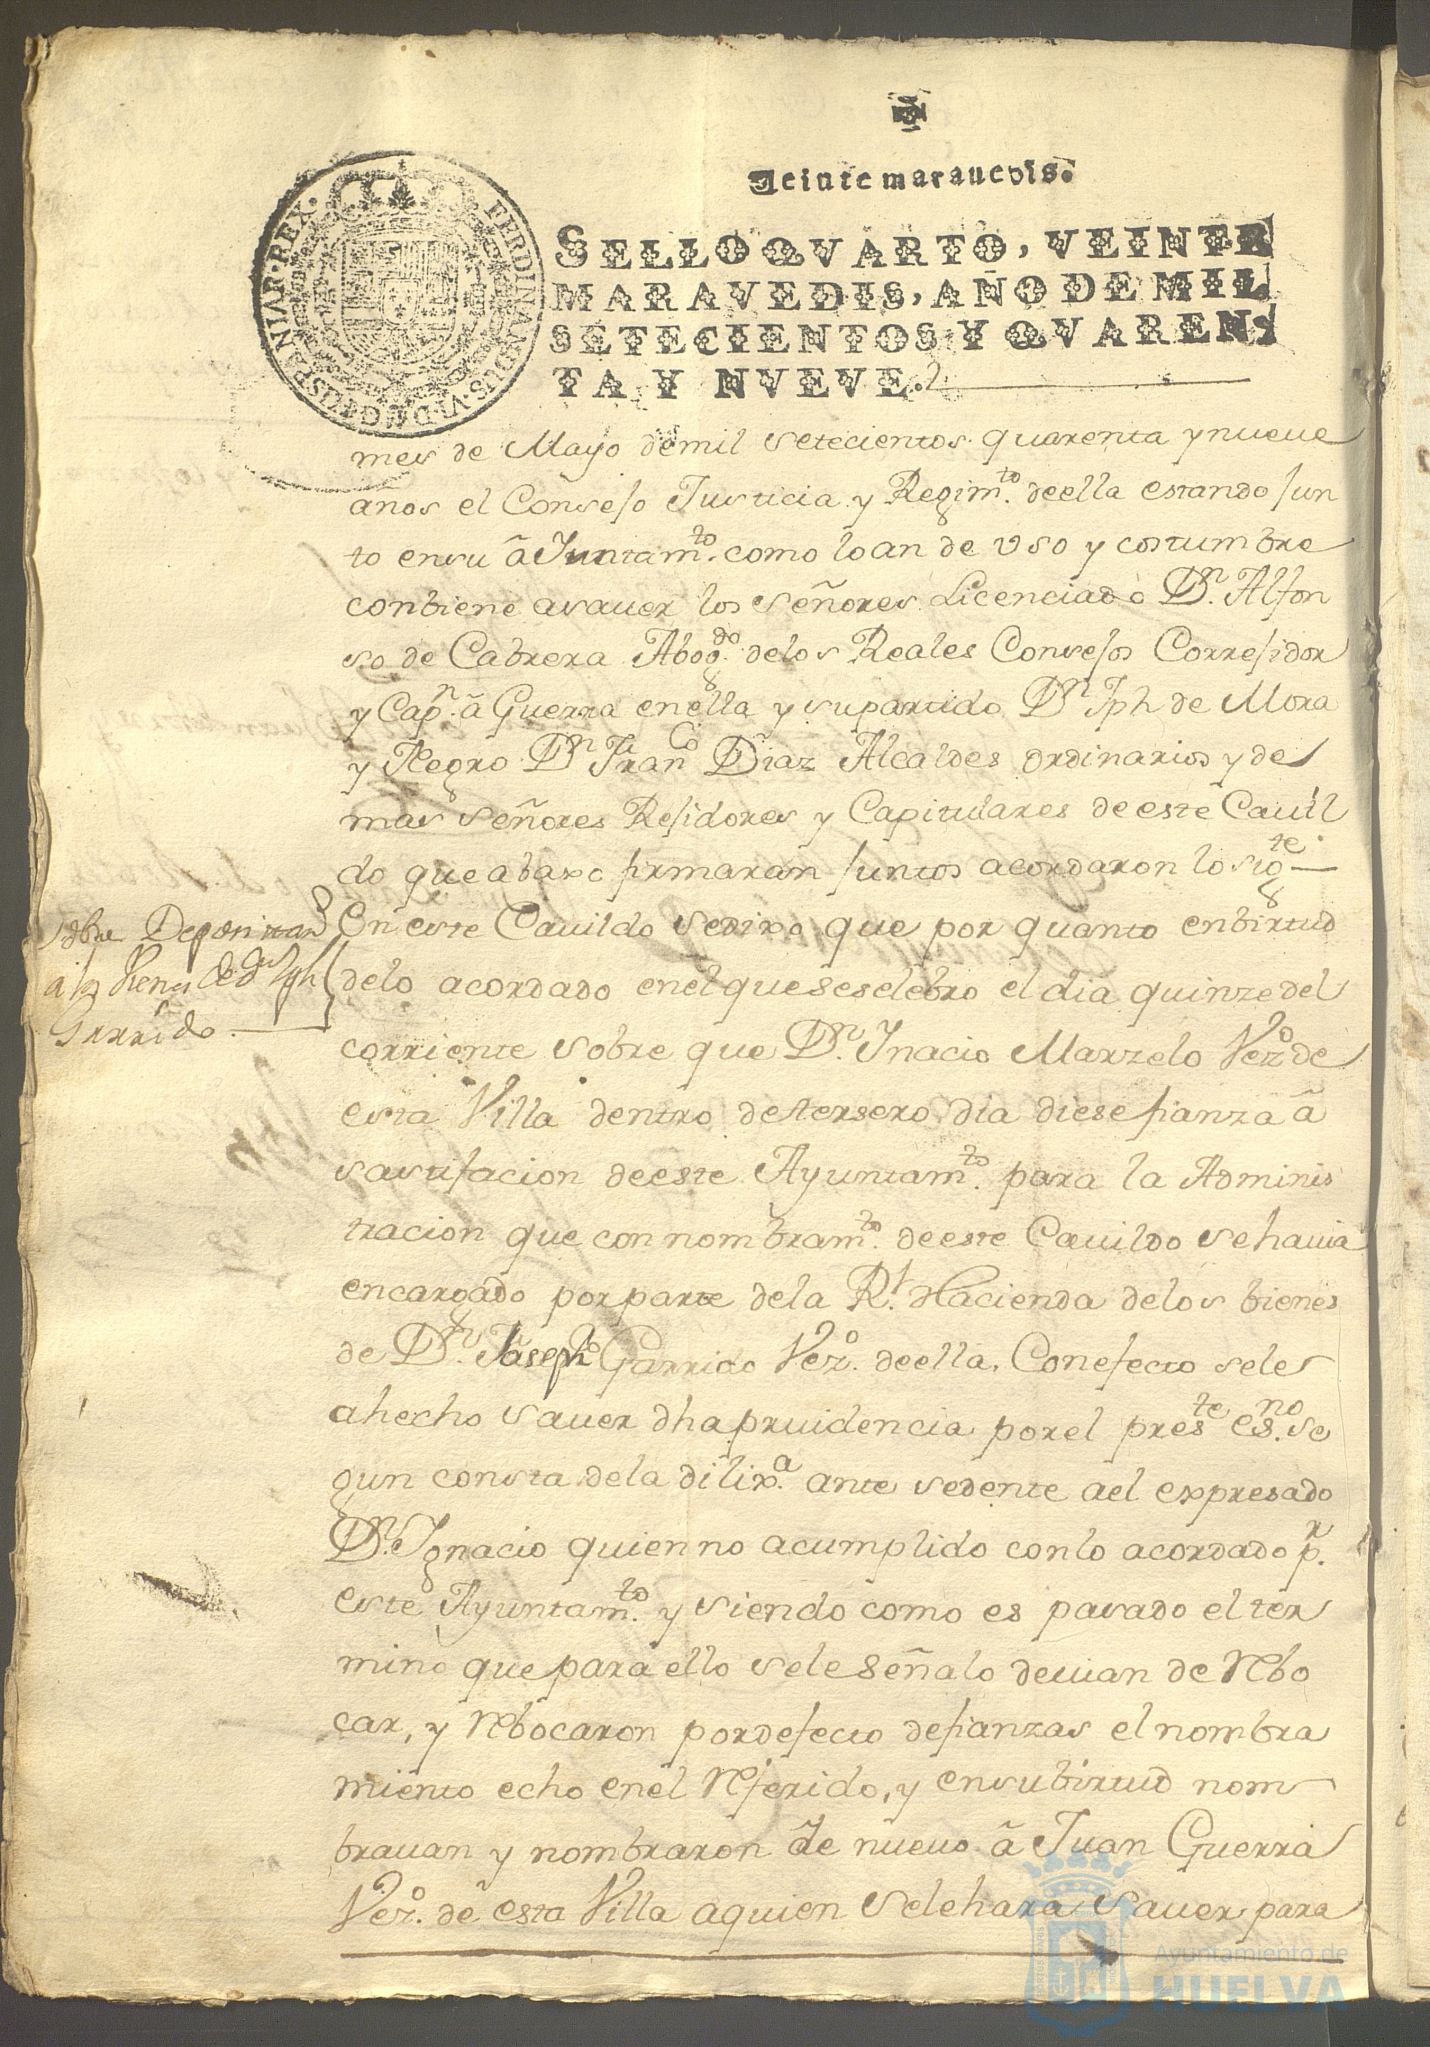 Veinte maravedis.
FERDINANDUS·VI·D·G·HISPANIAR·REX·
SELLO QVARTO, VEINTE
MARAVEDIS, AÑO DE MIL
SETECIENTOS Y QVAREN-
TA Y NVEVE.
mes de Mayo demil setecientos quarenta ynueve
años el Consejo Justicia y Regim.to deella estando jun
to ensu âJuntam.to como loan de Vso y costumbre
conbiene asauer los Señores Licenciado D.n Alfon
so de Cabrera Abog.do delos Reales Consejos Correjidor
y Cap.n â Guerra enella y supartido D.n Jph de Mora
y Negro D.n Fran.co Diaz Alcaldes ordinarios y de
mas Señores Rejidores y Capitulares de este Cauil
do que abaxo firmaran juntos acordaron lo sig.te
Sobre Depositar
a la
Garrido
En este Cauildo sedixo que por quanto enbirtud
delo acordado enel que seselebro el dia quinze del
corriente sobre que D.n Jnacio Marzelo Vez.o de
esta Villa dentro detersero dia diese fianza â
sastifacion deeste Ayuntam.to para la Adminis
tracion que con nombram.to deeste Cauildo sehauia
encargado porparte dela R.l Hacienda delos bienes
de D.n Joseph Garrido Vez.o deella, Conefecto sele
ahecho sauer dha pruidencia porel pres.te es.no se
gun consta dela dilix.a ante sedente ael expresado
D.n Jgnacio quien no acumplido conlo acordado p.r
este Ayuntam.to y siendo como es pasado el ter
mino que para ello sele señalo deuian de Rebo
car, y Rebocaron pordefecto defianzas el nombra
miento echo enel Referido, y ensubirtud nom
brauan y nombraron de nuevo â Juan Guerra
Vez.o de esta Villa aquien Selehara Sauer para
Ayuntamiento de
HUELVA